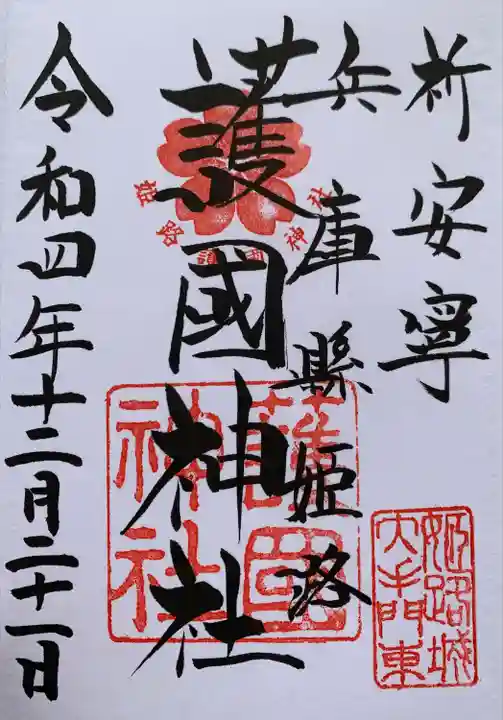 祈安寧
兵庫縣姫路
護國神社
令和四年十二月二十一日
姫路護國神社
護國神社
姫路城
大手門東